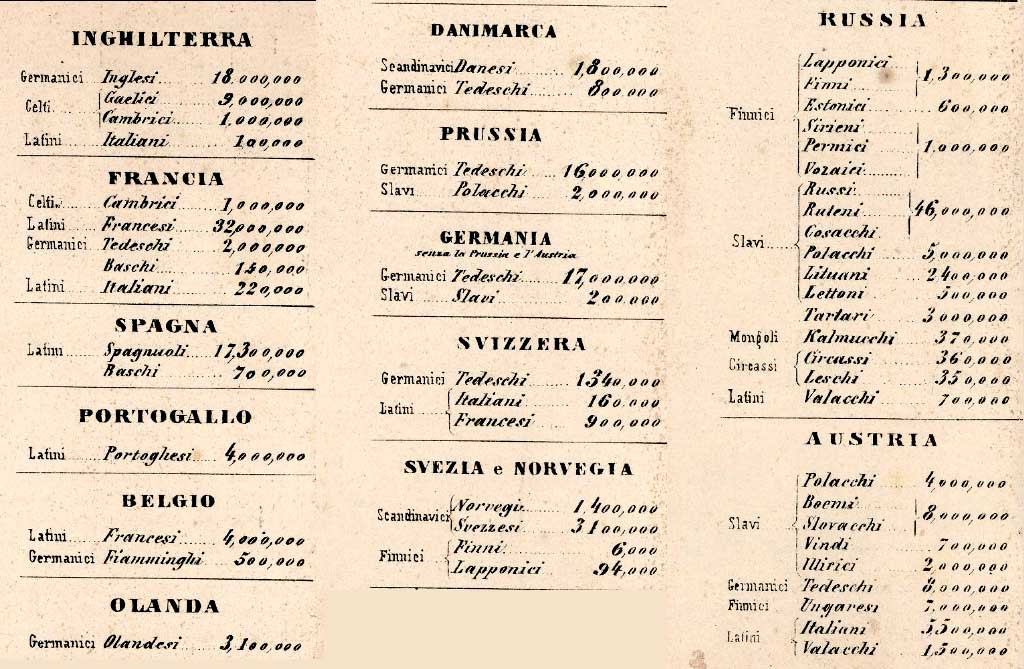 INGHILTERRA
Germanici Inglesi 18,000,000
Celti Gaelici 9,000,000
Cambrici 1,000,000
Latini Italiani 100,000
FRANCIA
Celti Cambrici 1,000,000
Latini Francesi 32,000,000
Germanici Tedeschi 2,000,000
Baschi 140,000
Latini Italiani 220,000
SPAGNA
Latini Spagnuoli 17,300,000
Baschi 700,000
PORTOGALLO
Latini Portoghesi 4,000,000
BELGIO
Latini Francesi 4,000,000
Germanici Fiamminghi 500,000
OLANDA
Germanici Olandesi 3,100,000
DANIMARCA
Scandinavici Danesi 1,800,000
Germanici Tedeschi 800,000
PRUSSIA
Germanici Tedeschi 16,000,000
Slavi Polacchi 2,000,000
GERMANIA
senza la Prussia e l'Austria
Germanici Tedeschi 17,000,000
Slavi Slavi 200,000
SVIZZERA
Germanici Tedeschi 1,340,000
Latini Italiani 160,000
Francesi 900,000
SVEZIA e NORVEGIA
Scandinavici Norvegi 1,400,000
Svezzesi 3,100,000
Finnici Finni 6,000
Lapponici 94,000
RUSSIA
Finnici Lapponici
Finni 1,300,000
Estonici 600,000
Sirieni
Permici 1,000,000
Votaici
Slavi Russi
Ruteni 46,000,000
Cosacchi
Polacchi 5,000,000
Lituani 2,400,000
Lettoni 500,000
Tartari 3,000,000
Mongoli Kalmucchi 370,000
Circassi Circassi 360,000
Leschi 350,000
Latini Valacchi 700,000
AUSTRIA
Slavi Polacchi 4,000,000
Boemi
Slovacchi 8,000,000
Vindi 700,000
Illirici 2,000,000
Germanici Tedeschi 8,000,000
Finnici Ungaresi 7,000,000
Latini Italiani 5,500,000
Valacchi 1,500,000